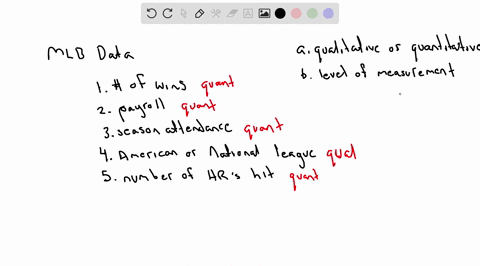 MLB Data
1. # of wins quant
2. payroll quant
3. season attendance quant
4. American or National league qual
5. number of HR's hit quant
a. qualitative or quantitative
b. level of measurement